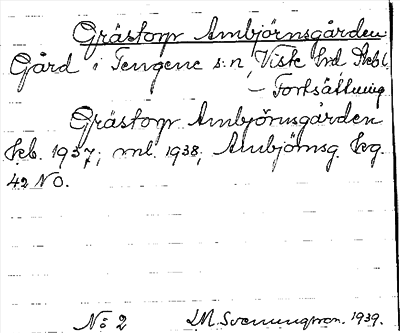 Grästorp Ambjörnsgården
Gård i Tengene s:n, Viste hrd Skbl.
– Fortsättning
Grästorp Ambjörnsgården
Skb. 1937; ml. 1938; Ambjörnsg. kg.
42 NO.
No: 2 I.M. Svenungsson. 1939.